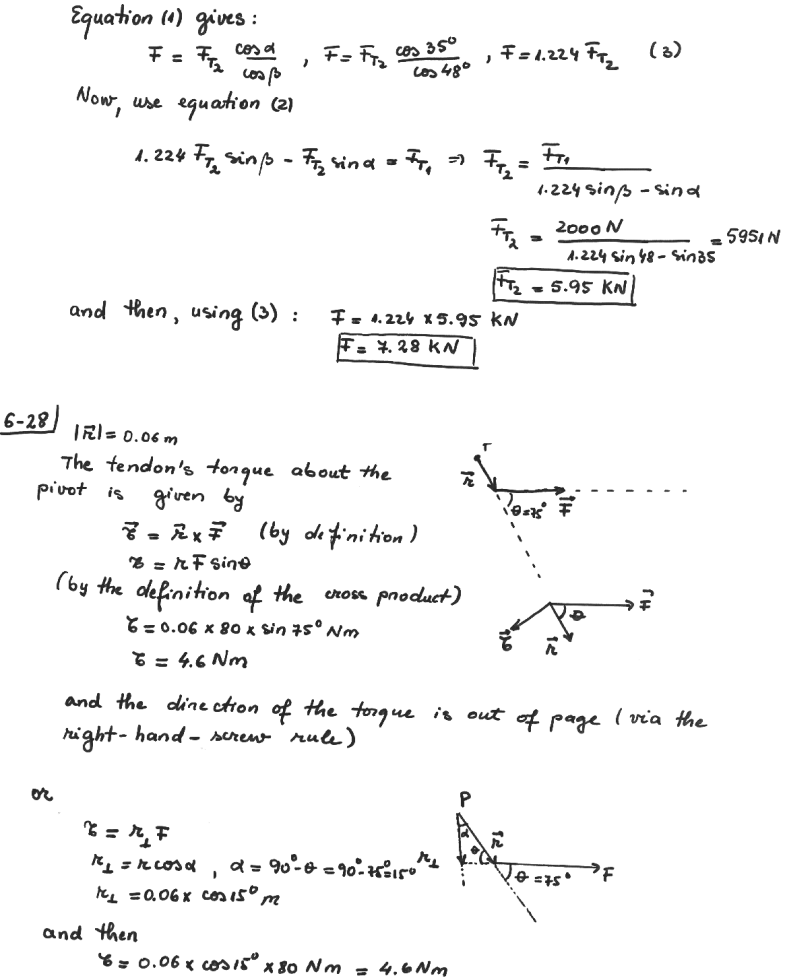 Equation (1) gives:
F = F_T2 cosα/cosβ , F = F_T2 cos 35°/cos 48° , F = 1.224 F_T2 (3)
Now, use equation (2)
1.224 F_T2 sinβ - F_T2 sinα = F_T1 => F_T2 = F_T1/(1.224 sinβ - sinα)
F_T2 = 2000 N/(1.224 sin 48 - sin 35) = 5951 N
F_T2 = 5.95 KN
and then, using (3) : F = 1.224 x 5.95 KN
F = 7.28 KN
6-28
|r⃗| = 0.06 m
The tendon's torque about the
pivot is given by
τ⃗ = r⃗ x F⃗ (by definition)
τ = r F sinθ
(by the definition of the cross product)
τ = 0.06 x 80 x sin 75° Nm
τ = 4.6 Nm
T
r⃗
θ=75° F⃗
F⃗
θ
τ⃗ r⃗
and the direction of the torque is out of page (via the
right-hand-screw rule)
or
τ = r⊥ F
r⊥ = r cosα , α = 90°-θ = 90°-75°=15°
r⊥ = 0.06 x cos 15° m
P
α
r⃗
θ
r⊥
θ = 75° F
and then
τ = 0.06 x cos 15° x 80 Nm = 4.6 Nm